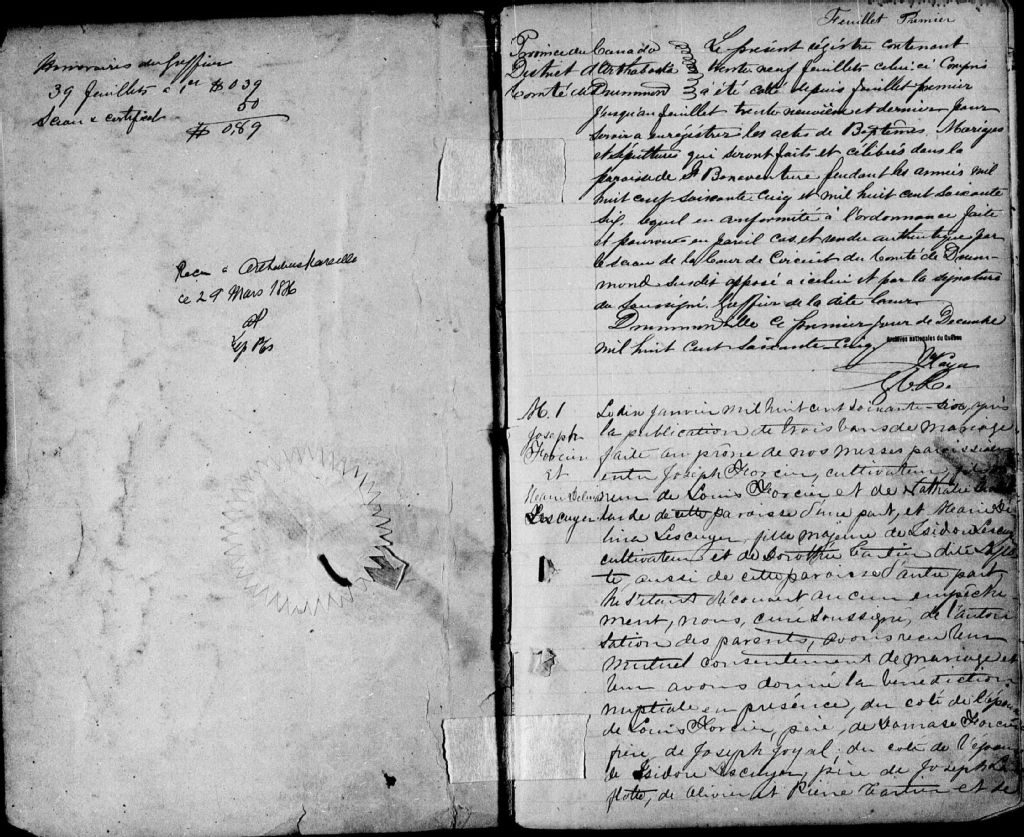 Honoraires du Greffier
39 feuillets a 1ct $0.39
Sceau & certificat 50
$ 0.89
Recu à Arthabaskaville
ce 29 Mars
Feuillet Premier
Province du Canada
District d'Arthabaska
Comté de Drummond
Le présent régistre contenant
trente neuf feuillets celui ci Compris
a été coté depuis feuillet premier
jusqu'au feuillet trente neuvième et dernier pour
servir a enregistrer les actes de Baptêmes, Mariages
et Sépultures qui seront faits et célébrés dans la
paroisse de St Bonaventure pendant les années mil
huit cent soixante Cinq et mil huit cent soixante
six, lequel en conformité à l'ordonnance faite
et pourvue en pareil cas, et rendu authentique par
le sceau de la Cour de Circuit du Comté de Drum-
mond susdit apposé a icelui et par la signature
du Soussigné, Greffier de la dite Cour
Drummondville ce premier jour de Decembre
mil huit Cent Soixante-Cinq
Archives nationales du Québec
G.C.C.
M. 1
Joseph
Forcier
Et
Marie Delina
Lescuyer
Le dix janvier mil huit cent soixante-six, après
la publication de trois bans de mariage
faite au prône de nos messes paroissiales
entre Joseph Forcier, cultivateur, fils
de Louis Forcier et de Nathalie
de cette paroisse d'une part, et Marie De-
lina Lescuyer, fille majeure de Isidore Lescuyer
cultivateur et de Dorothée Cartier dite
aussi de cette paroisse d'autre part
ne s'étant découvert aucun empêche-
ment, nous, curé soussigné, de l'autori
sation des parents, avons reçu leur
mutuel consentement de mariage et
leur avons donné la bénédiction
nuptiale en présence, du coté de l'époux
de Louis Forcier, père, de Damase Forcier
frère, de Joseph Joyal, du coté de l'épouse
de Isidore Lescuyer, père de Joseph
de Olivier et Pierre Cartier et de